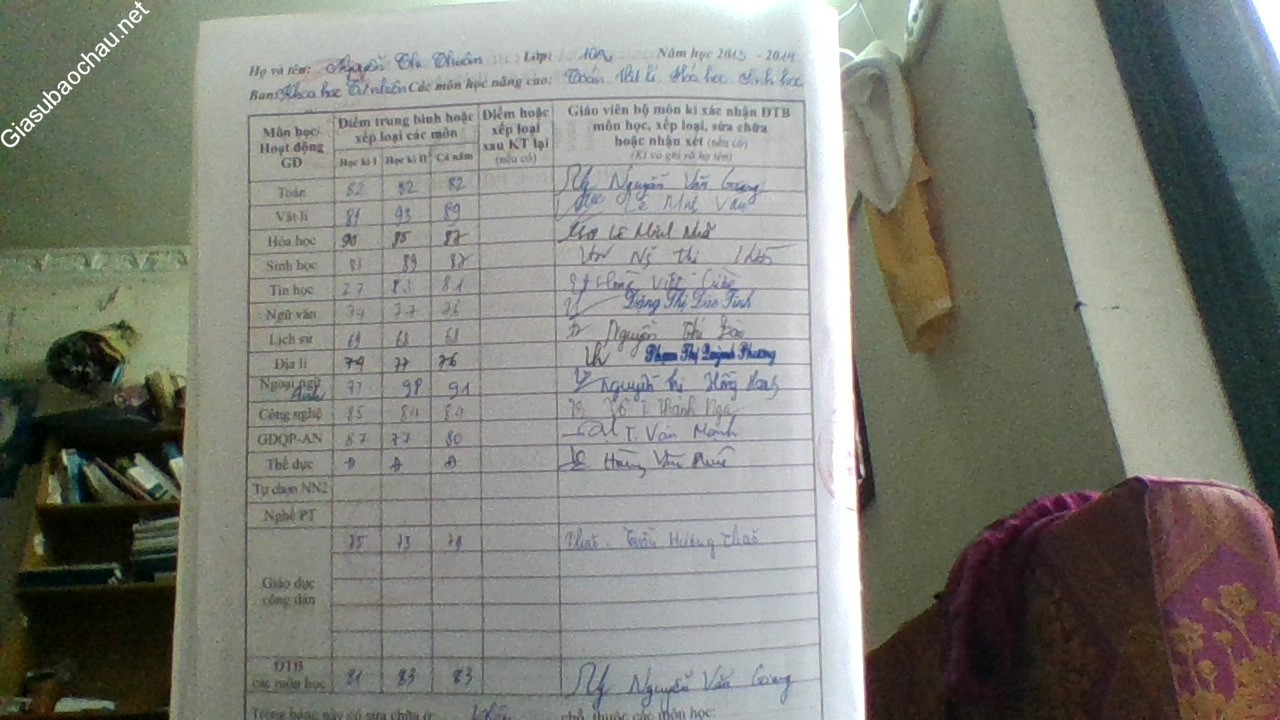 Giasubaochau.net
Họ và tên: Nguyễn Thị Thuần Lớp: 10A Năm học 2013 - 2014
Ban: Khoa học Tự nhiên Các môn học nâng cao: Toán Vật lí Hóa học Sinh học
Môn học/ Hoạt động GD
Điểm trung bình hoặc xếp loại các môn
Học kì I Học kì II Cả năm
Điểm hoặc xếp loại sau KT lại (nếu có)
Giáo viên bộ môn kí xác nhận ĐTB môn học, xếp loại, sửa chữa hoặc nhận xét (nếu có)
(Kí và ghi rõ họ tên)
Toán 82 82 82 Nguyễn Văn Giang
Vật lí 81 93 89 Lê
Hóa học 90 85 87 Lê Minh
Sinh học 83 89 87 Thị
Tin học 77 83 81 Việt
Ngữ văn 74 77 76 Đặng Thị Đào Tĩnh
Lịch sử 69 68 68 Nguyễn Thị Đào
Địa lí 74 77 76 Phạm Thị Quỳnh Phương
Ngoại ngữ Anh 77 98 91 Nguyễn Thị Hồng Hạnh
Công nghệ 85 84 84 Võ T Thành Nga
GDQP-AN 87 77 80 T. Văn Mạnh
Thể dục Đ Đ Đ Hoàng Văn
Tự chọn NN2
Nghề PT
Giáo dục công dân 75 73 74 Thảo Trần Hương Thảo
ĐTB các môn học 81 83 83 Nguyễn Văn Giang
Trong bảng này có sửa chữa ở: không chỗ, thuộc các môn học: